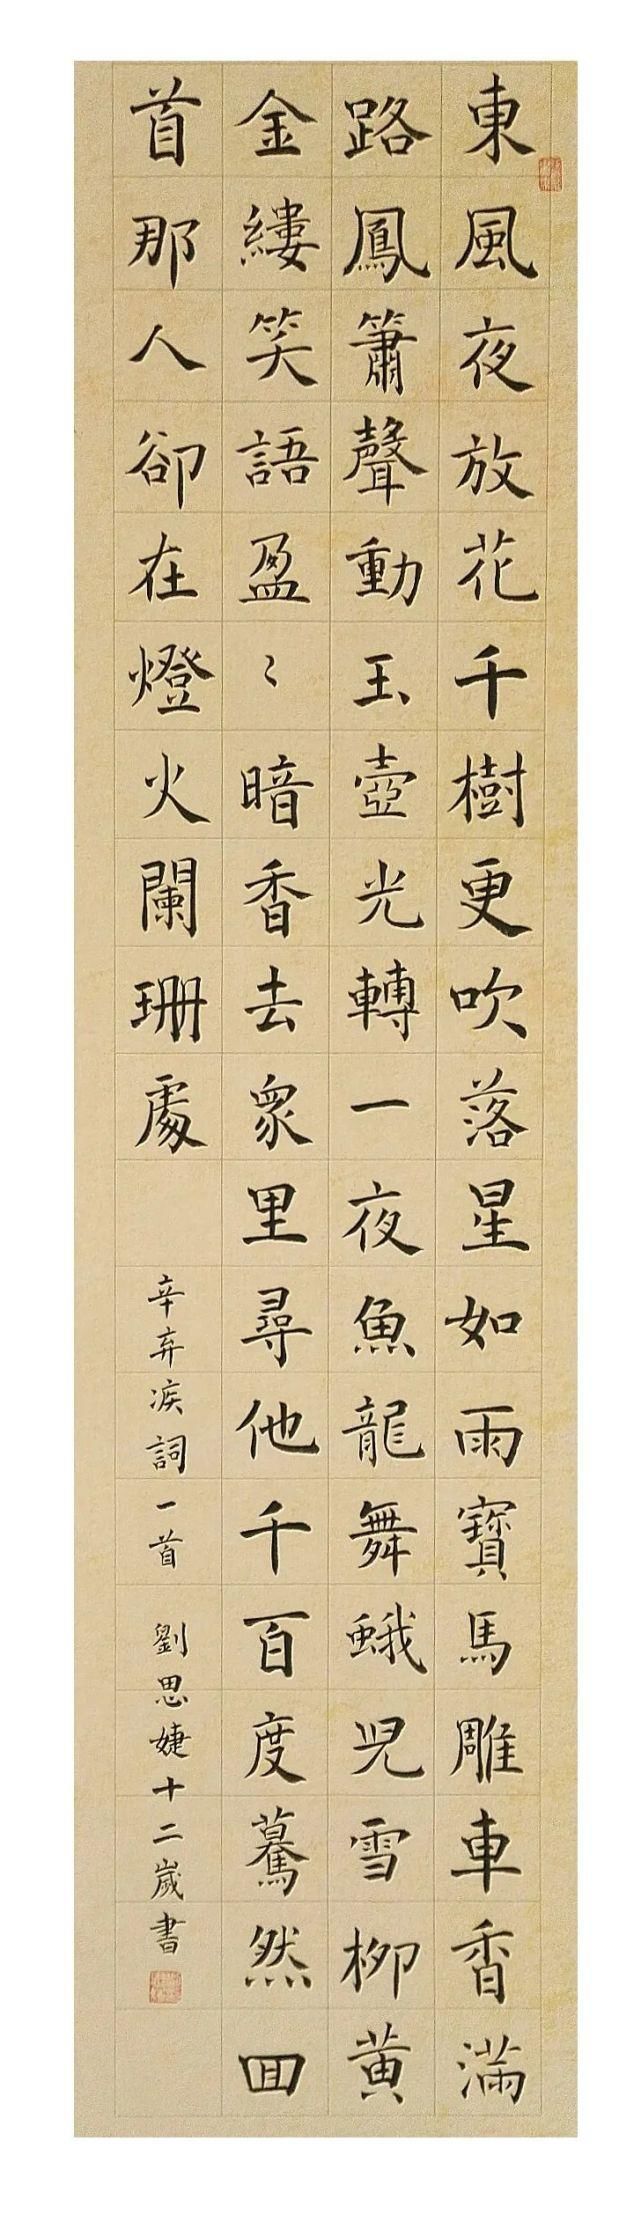 東風夜放花千樹更吹落星如雨寶馬雕車香滿
路鳳簫聲動玉壺光轉一夜魚龍舞蛾兒雪柳黃
金縷笑語盈〻暗香去眾里尋他千百度驀然回
首那人卻在燈火闌珊處
辛弃疾詞一首 劉思婕十二歲書